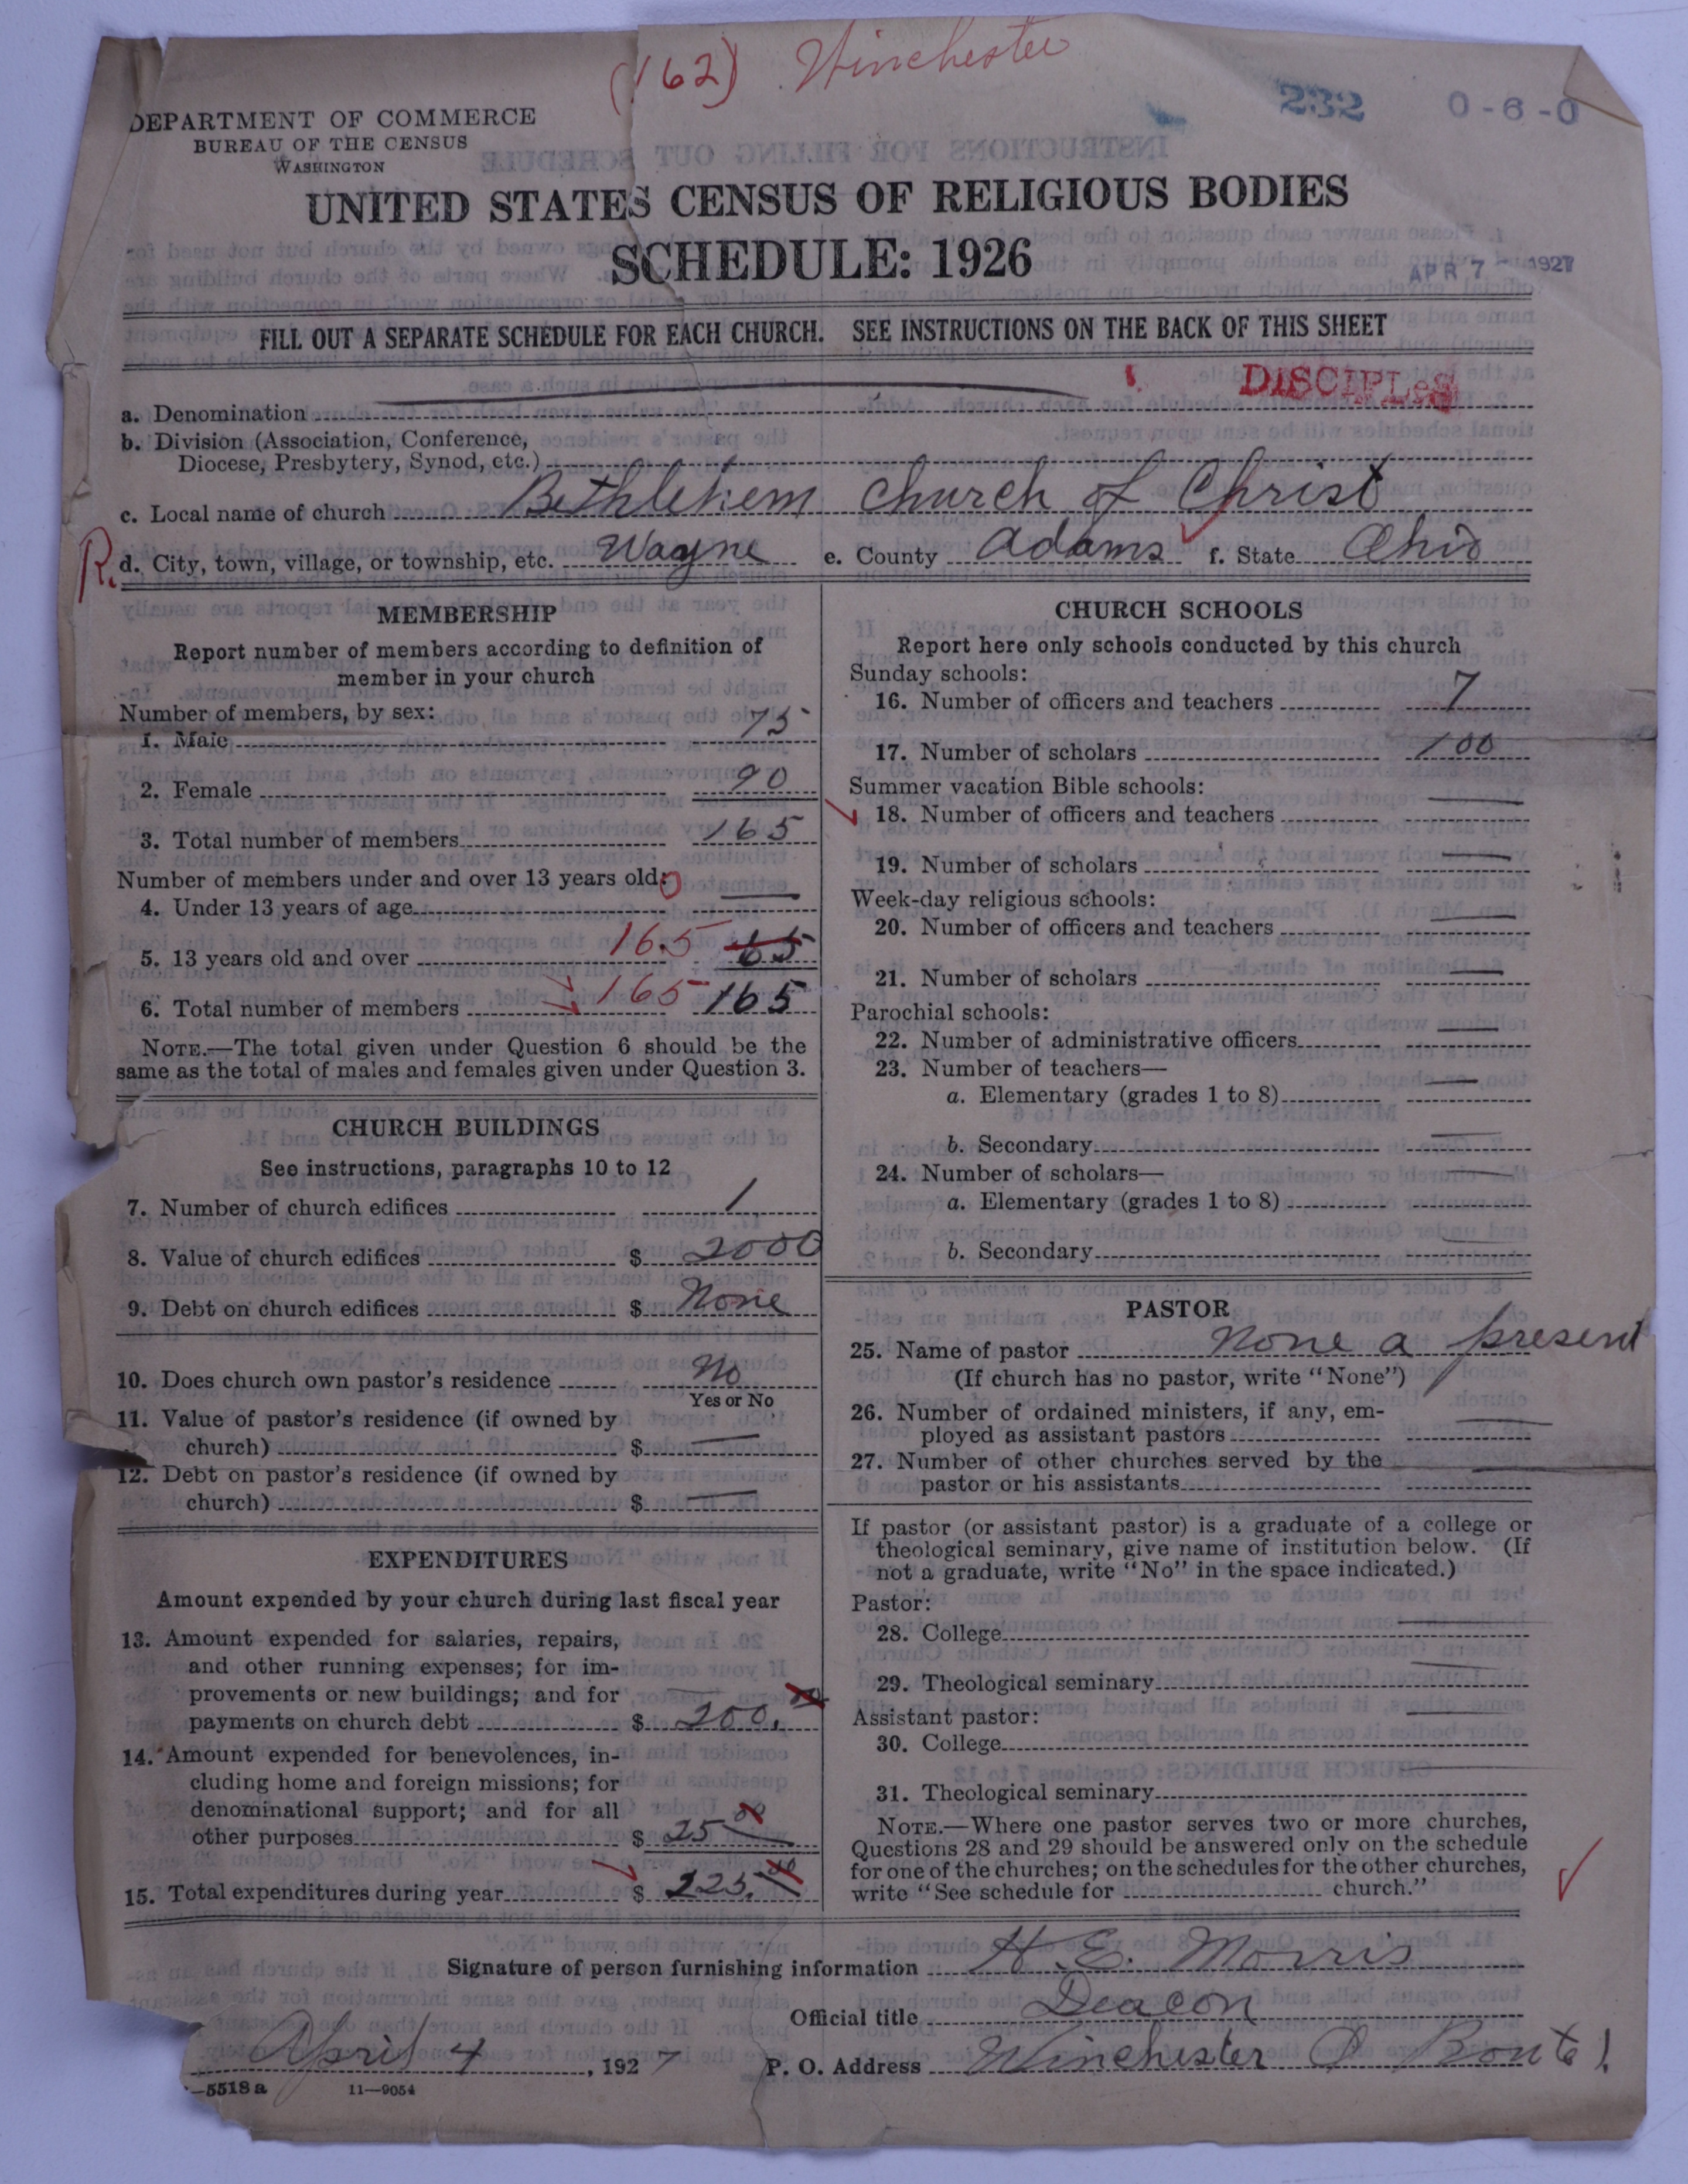 (162) Winchester
232 0-6-0
DEPARTMENT OF COMMERCE
BUREAU OF THE CENSUS
WASHINGTON
UNITED STATES CENSUS OF RELIGIOUS BODIES
SCHEDULE: 1926
APR 7 - 1927
FILL OUT A SEPARATE SCHEDULE FOR EACH CHURCH. SEE INSTRUCTIONS ON THE BACK OF THIS SHEET
DISCIPLES
a. Denomination
b. Division (Association, Conference,
Diocese, Presbytery, Synod, etc.)
c. Local name of church Bethlehem church of Christ
R. d. City, town, village, or township, etc. Wayne e. County Adams f. State Ohio
MEMBERSHIP
Report number of members according to definition of
member in your church
Number of members, by sex:
1. Male 75
2. Female 90
3. Total number of members 165
Number of members under and over 13 years old:
4. Under 13 years of age 0 —
5. 13 years old and over 165 65
6. Total number of members 165 165
NOTE.—The total given under Question 6 should be the
same as the total of males and females given under Question 3.
CHURCH BUILDINGS
See instructions, paragraphs 10 to 12
7. Number of church edifices 1
8. Value of church edifices $ 2000
9. Debt on church edifices $ None
10. Does church own pastor's residence No
Yes or No
11. Value of pastor's residence (if owned by
church) $ —
12. Debt on pastor's residence (if owned by
church) $ —
EXPENDITURES
Amount expended by your church during last fiscal year
13. Amount expended for salaries, repairs,
and other running expenses; for im-
provements or new buildings; and for
payments on church debt $ 200.00
14. Amount expended for benevolences, in-
cluding home and foreign missions; for
denominational support; and for all
other purposes $ 25 00
15. Total expenditures during year $ 225.00
CHURCH SCHOOLS
Report here only schools conducted by this church
Sunday schools:
16. Number of officers and teachers 7
17. Number of scholars 100
Summer vacation Bible schools:
18. Number of officers and teachers —
19. Number of scholars —
Week-day religious schools:
20. Number of officers and teachers —
21. Number of scholars —
Parochial schools:
22. Number of administrative officers —
23. Number of teachers—
a. Elementary (grades 1 to 8) —
b. Secondary —
24. Number of scholars—
a. Elementary (grades 1 to 8) —
b. Secondary —
PASTOR
25. Name of pastor None a present
(If church has no pastor, write "None")
26. Number of ordained ministers, if any, em-
ployed as assistant pastors —
27. Number of other churches served by the
pastor or his assistants —
If pastor (or assistant pastor) is a graduate of a college or
theological seminary, give name of institution below. (If
not a graduate, write "No" in the space indicated.)
Pastor:
28. College —
29. Theological seminary —
Assistant pastor:
30. College —
31. Theological seminary —
NOTE.—Where one pastor serves two or more churches,
Questions 28 and 29 should be answered only on the schedule
for one of the churches; on the schedules for the other churches,
write "See schedule for church."
Signature of person furnishing information H. E. Morris
Official title Deacon
April 4, 1927 P. O. Address Winchester O Route 1
—5518a 11—9054